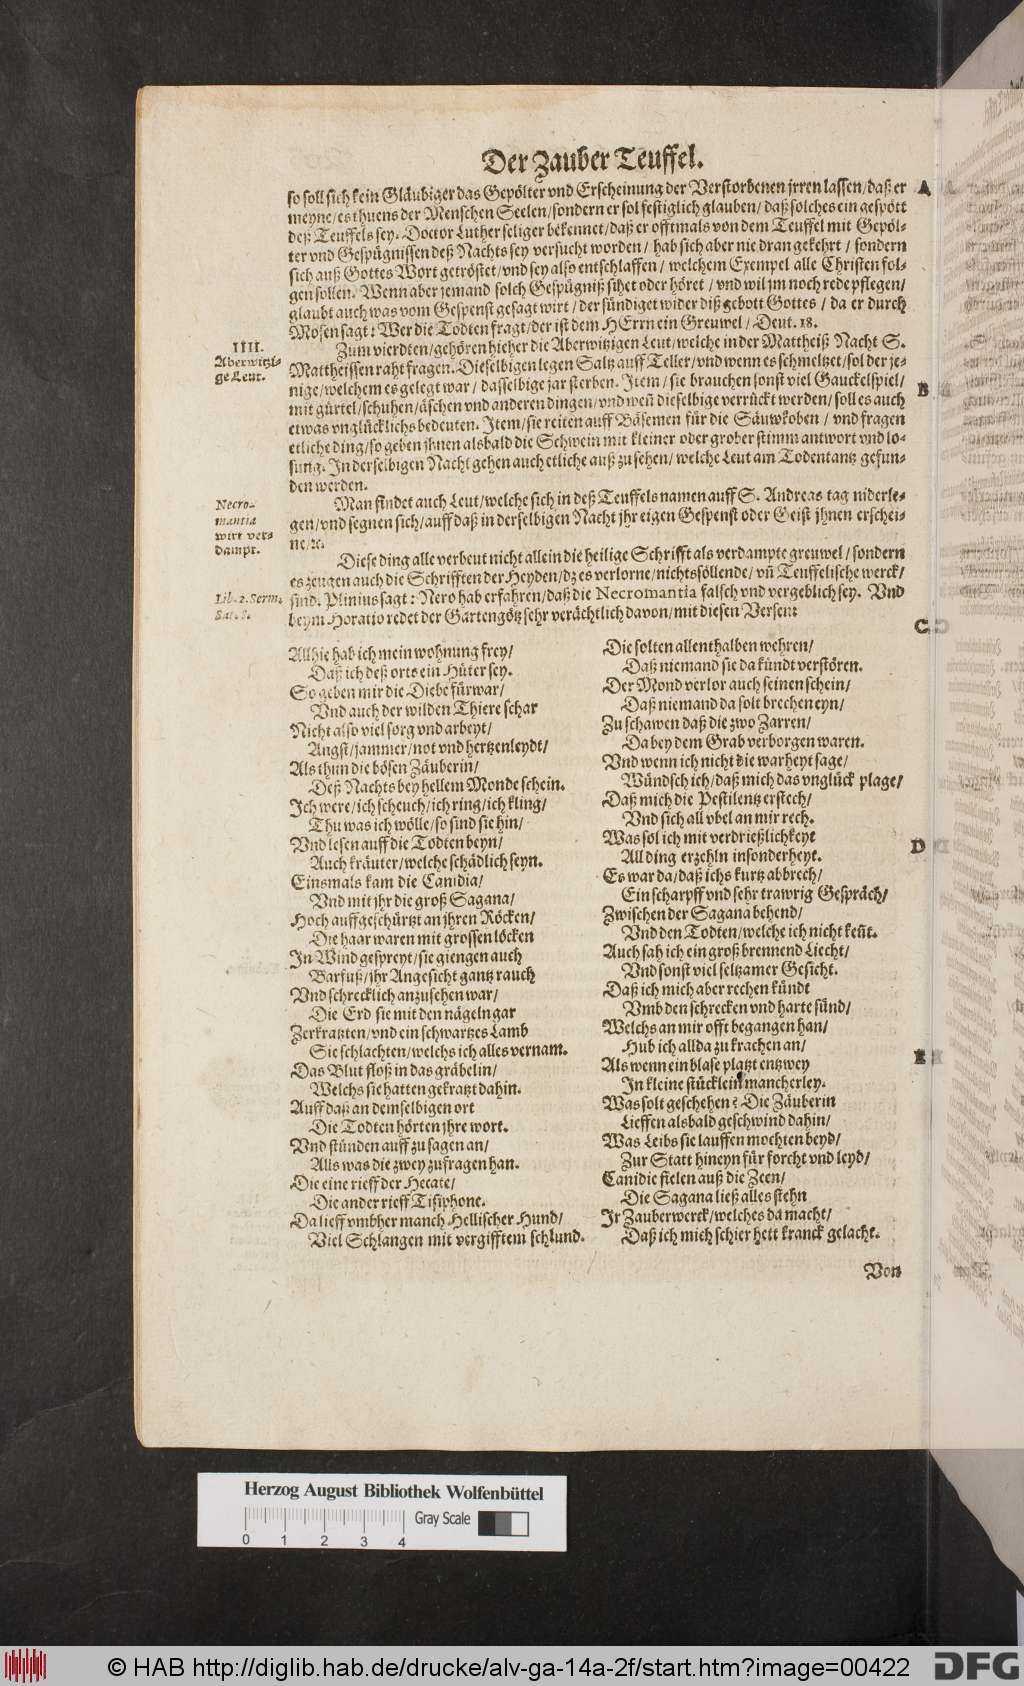 Der Zauber Teuffel.
so soll sich kein Gläubiger das Gepölter vnd Erscheinung der Verstorbenen jrren lassen/daß er
meyne/es thuens der Menschen Seelen/sondern er sol festiglich glauben/daß solches ein gespött
deß Teuffels sey. Doctor Luther seliger bekennet/daß er offtmals von dem Teuffel mit Gepöl-
ter vnd Gespügnissen deß Nachts sey versucht worden/hab sich aber nie dran gekehrt/sondern
sich auß Gottes Wort getröstet/vnd sey also entschlaffen/welchem Exempel alle Christen fol-
gen sollen. Wenn aber jemand solch Gespügniß sihet oder höret/vnd wil jm noch rede pflegen/
glaubt auch was vom Gespenst gesagt wirt/der sündiget wider diß gebott Gottes/da er durch
Mosen sagt: Wer die Todten fragt/der ist dem HErrn ein Greuwel/Deut. 18.
IIII.
Aberwitzi-
ge Leut.
Zum vierdten/gehören hieher die Aberwitzigen Leut/welche in der Mattheiß Nacht S.
Mattheissen raht fragen. Dieselbigen legen Saltz auff Teller/vnd wenn es schmeltzet/sol der je-
nige/welchem es gelegt war/dasselbige jar sterben. Item/sie brauchen sonst viel Gauckelspiel/
mit gürtel/schuhen/äschen vnd anderen dingen/vnd weñ dieselbige verrückt werden/soll es auch
etwas vnglücklichs bedeuten. Item/sie reiten auff Bäsemen für die Säuwkoben/vnd fragen
etliche ding/so geben jhnen alsbald die Schwein mit kleiner oder grober stimm antwort vnd lo-
sung. In derselbigen Nacht gehen auch etliche auß zu sehen/welche Leut am Todentantz gefun-
den werden.
Necro-
mantia
wirt ver-
dampt.
Man findet auch Leut/welche sich in deß Teuffels namen auff S. Andreas tag niderle-
gen/vnd segnen sich/auff daß in derselbigen Nacht jhr eigen Gespenst oder Geist jhnen erschei-
ne/ꝛc.
Diese ding alle verbeut nicht allein die heilige Schrifft als verdampte greuwel/sondern
es zeugen auch die Schrifften der Heyden/dz es verlorne/nichtsöllende/vñ Teuffelische werck/
Lib. 2. Serm.
Sat. 8.
sind. Plinius sagt: Nero hab erfahren/daß die Necromantia falsch vnd vergeblich sey. Vnd
beym Horatio redet der Gartengötz sehr verächtlich davon/mit diesen Versen:
Allhie hab ich mein wohnung frey/
Daß ich deß orts ein Hüter sey.
So geben mir die Diebe fürwar/
Vnd auch der wilden Thiere schar
Nicht also viel sorg vnd arbeyt/
Angst/jammer/not vnd hertzenleydt/
Als thun die bösen Zäuberin/
Deß Nachts bey hellem Monde schein.
Ich were/ich scheuch/ich ring/ich kling/
Thu was ich wölle/so sind sie hin/
Vnd lesen auff die Todten beyn/
Auch kräuter/welche schädlich seyn.
Einsmals kam die Canidia/
Vnd mit jhr die groß Sagana/
Hoch auffgeschürtzt an jhren Röcken/
Die haar waren mit grossen löcken
In Wind gespreyt/sie giengen auch
Barfuß/jhr Angesicht gantz rauch
Vnd schrecklich anzusehen war/
Die Erd sie mit den nägeln gar
Zerkratzten/vnd ein schwartzes Lamb
Sie schlachten/welchs ich alles vernam.
Das Blut floß in das gräbelin/
Welchs sie hatten gekratzt dahin.
Auff daß an demselbigen ort
Die Todten hörten jhre wort.
Vnd stünden auff zu sagen an/
Alls was die zwey zufragen han.
Die eine rieff der Hecate/
Die ander rieff Tisiphone.
Da lieff vmbher manch Hellischer Hund/
Viel Schlangen mit vergifftem schlund.
Die solten allenthalben wehren/
Daß niemand sie da kündt verstören.
Der Mond verlor auch seinen schein/
Daß niemand da solt brechen eyn/
Zu schawen daß die zwo Zarren/
Da bey dem Grab verborgen waren.
Vnd wenn ich nicht die warheyt sage/
Wündsch ich/daß mich das vnglück plage/
Daß mich die Pestilentz erstech/
Vnd sich all vbel an mir rech.
Was sol ich mit verdrießlichkeyt
All ding erzehln insonderheyt.
Es war da/daß ichs kurtz abbrech/
Ein scharpff vnd sehr trawrig Gespräch/
Zwischen der Sagana behend/
Vnd den Todten/welche ich nicht keñt.
Auch sah ich ein groß brennend Liecht/
Vnd sonst viel seltzamer Gesicht.
Daß ich mich aber rechen kündt
Vmb den schrecken vnd harte sünd/
Welchs an mir offt begangen han/
Hub ich allda zu krachen an/
Als wenn ein blase platzt entzwey
In kleine stücklein mancherley.
Was solt geschehen? Die Zäuberin
Lieffen alsbald geschwind dahin/
Was Leibs sie lauffen mochten beyd/
Zur Statt hineyn für forcht vnd leyd/
Canidie fielen auß die Zeen/
Die Sagana ließ alles stehn
Ir Zauberwerck/welches da macht/
Daß ich mich schier hett kranck gelacht.
Von
A
B
C
D
E
Herzog August Bibliothek Wolfenbüttel
Gray Scale
0 1 2 3 4
© HAB http://diglib.hab.de/drucke/alv-ga-14a-2f/start.htm?image=00422
DFG